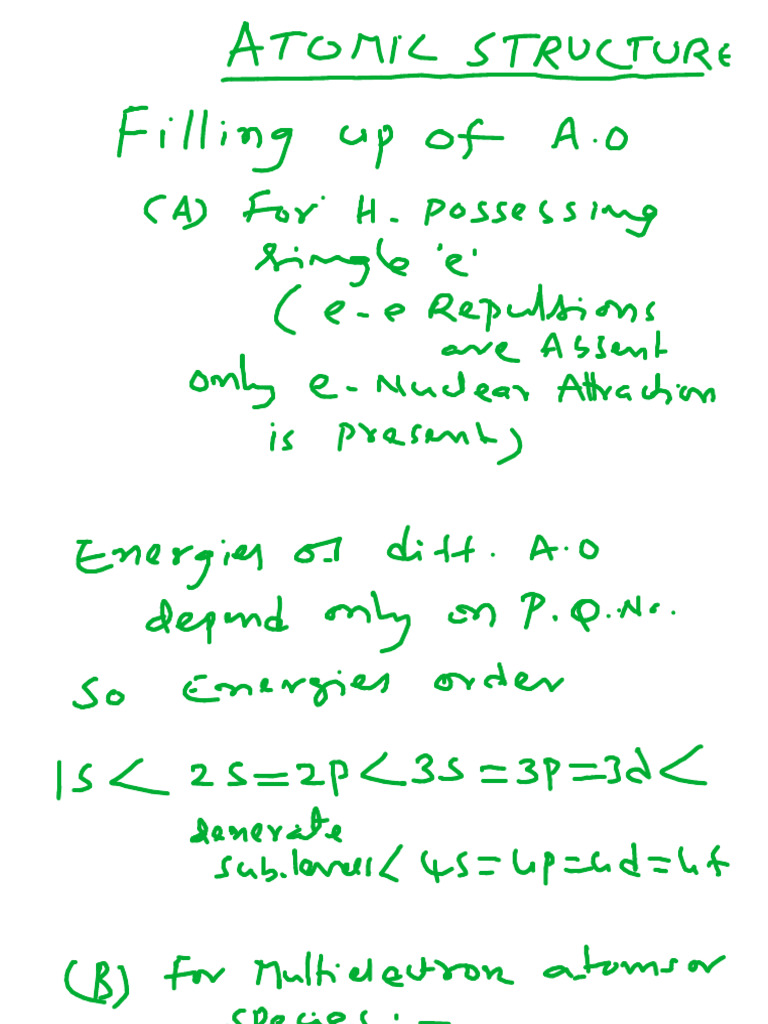 ATOMIC STRUCTURE
Filling up of A.O
(A) For H- Possessing
single 'e'
(e-e Repulsions
are Absent
only e-Nuclear Attraction
is present)
Energies of diff. A.O
depend only on P.Q.No.
So Energies order
1s < 2s = 2p < 3s = 3p = 3d <
denerate
sub.levels < 4s = 4p = 4d = 4f
(B) For Multielectron atoms or
species :-